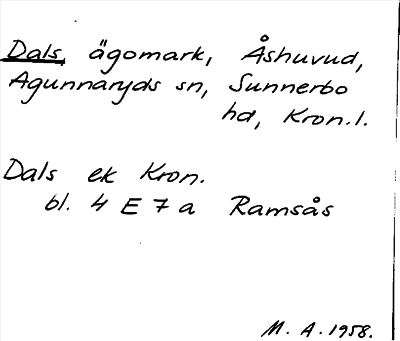 Dals, ägomark, Åshuvud,
Agunnaryds sn, Sunnerbo
hd, Kron.l.
Dals ek Kron.
bl. 4 E 7 a Ramsås
M. A. 1958.